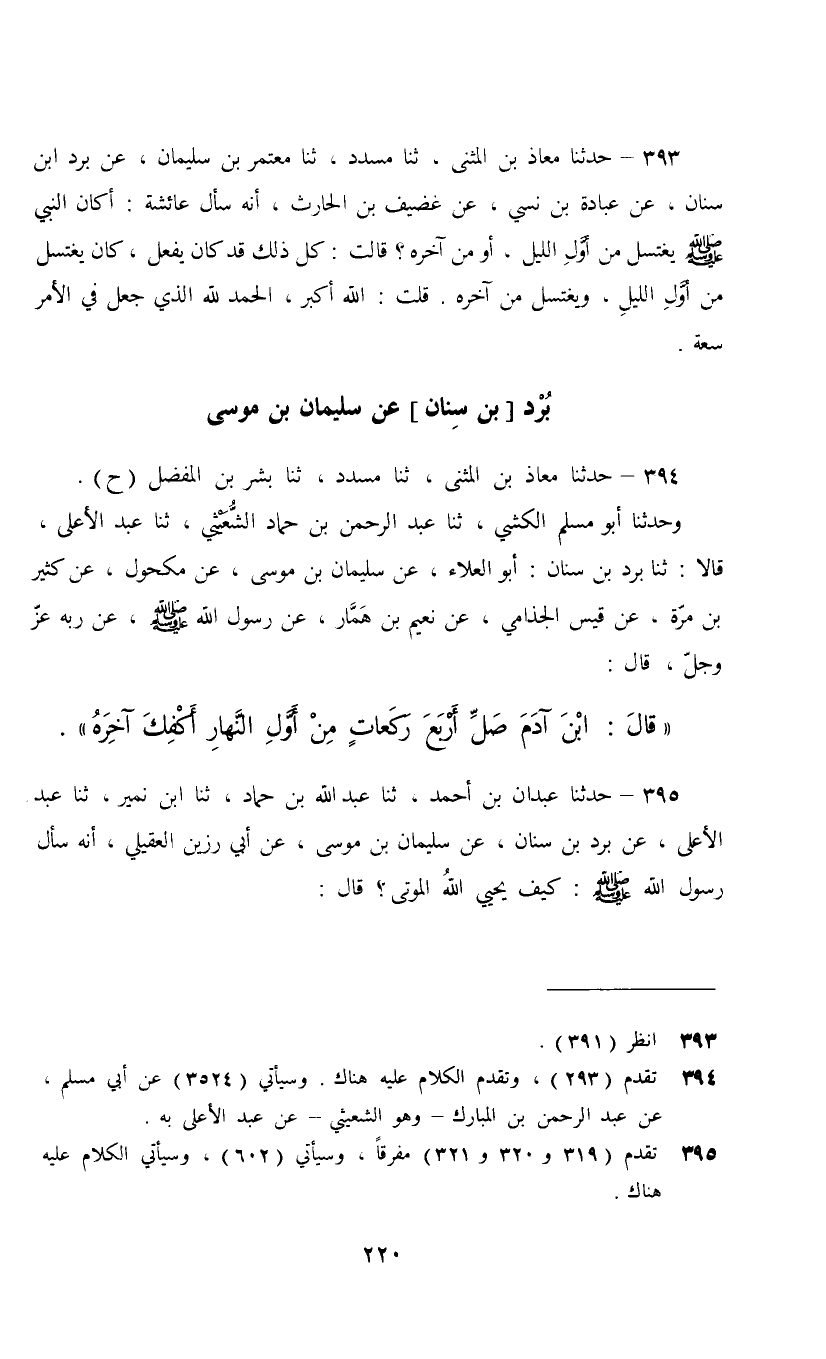 ٣٩٣ – حدثنا معاذ بن المثنى . ثنا مسدد ، ثنا معتمر بن سليمان ، عن برد ابن
سنان ، عن عبادة بن نسي ، عن غضيف بن الحارث ، أنه سأل عائشة : أكان النبي
ﷺ يغتسل من أوَّلِ الليل . أو من آخره ؟ قالت : كل ذلك قد كان يفعل ، كان يغتسل
من أوَّلِ الليلِ . ويغتسل من آخره . قلت : الله أكبر ، الحمد لله الذي جعل في الأمر
سعة .
بُرْد [ بن سِنان ] عن سليمان بن موسى
٣٩٤ – حدثنا معاذ بن المثنى ، ثنا مسدد ، ثنا بشر بن المفضل ( ح ) .
وحدثنا أبو مسلم الكشي ، ثنا عبد الرحمن بن حماد الشُّعَيْثي ، ثنا عبد الأعلى ،
قالا : ثنا برد بن سنان : أبو العلاء ، عن سليمان بن موسى ، عن مكحول ، عن كثير
بن مرّة . عن قيس الجذامي ، عن نعيم بن هَمَّار ، عن رسول الله ﷺ ، عن ربه عزّ
وجلّ ، قال :
« قالَ : ابْنَ آدَمَ صَلِّ أَرْبَعَ رَكَعاتٍ مِنْ أَوَّلِ النَّهارِ أَكْفِكَ آخِرَهُ » .
٣٩٥ – حدثنا عبدان بن أحمد ، ثنا عبد الله بن حماد ، ثنا ابن نمير ، ثنا عبد
الأعلى ، عن برد بن سنان ، عن سليمان بن موسى ، عن أبي رزين العقيلي ، أنه سأل
رسول الله ﷺ : كيف يحيي اللهُ الموتى ؟ قال :
٣٩٣ انظر ( ٣٩١ ) .
٣٩٤ تقدم ( ٢٩٣ ) ، وتقدم الكلام عليه هناك . وسيأتي ( ٣٥٢٤ ) عن أبي مسلم ،
عن عبد الرحمن بن المبارك – وهو الشعيثي – عن عبد الأعلى به .
٣٩٥ تقدم ( ٣١٩ و ٣٢٠ و ٣٢١ ) مفرقاً ، وسيأتي ( ٦٠٢ ) ، وسيأتي الكلام عليه
هناك .
٢٢٠